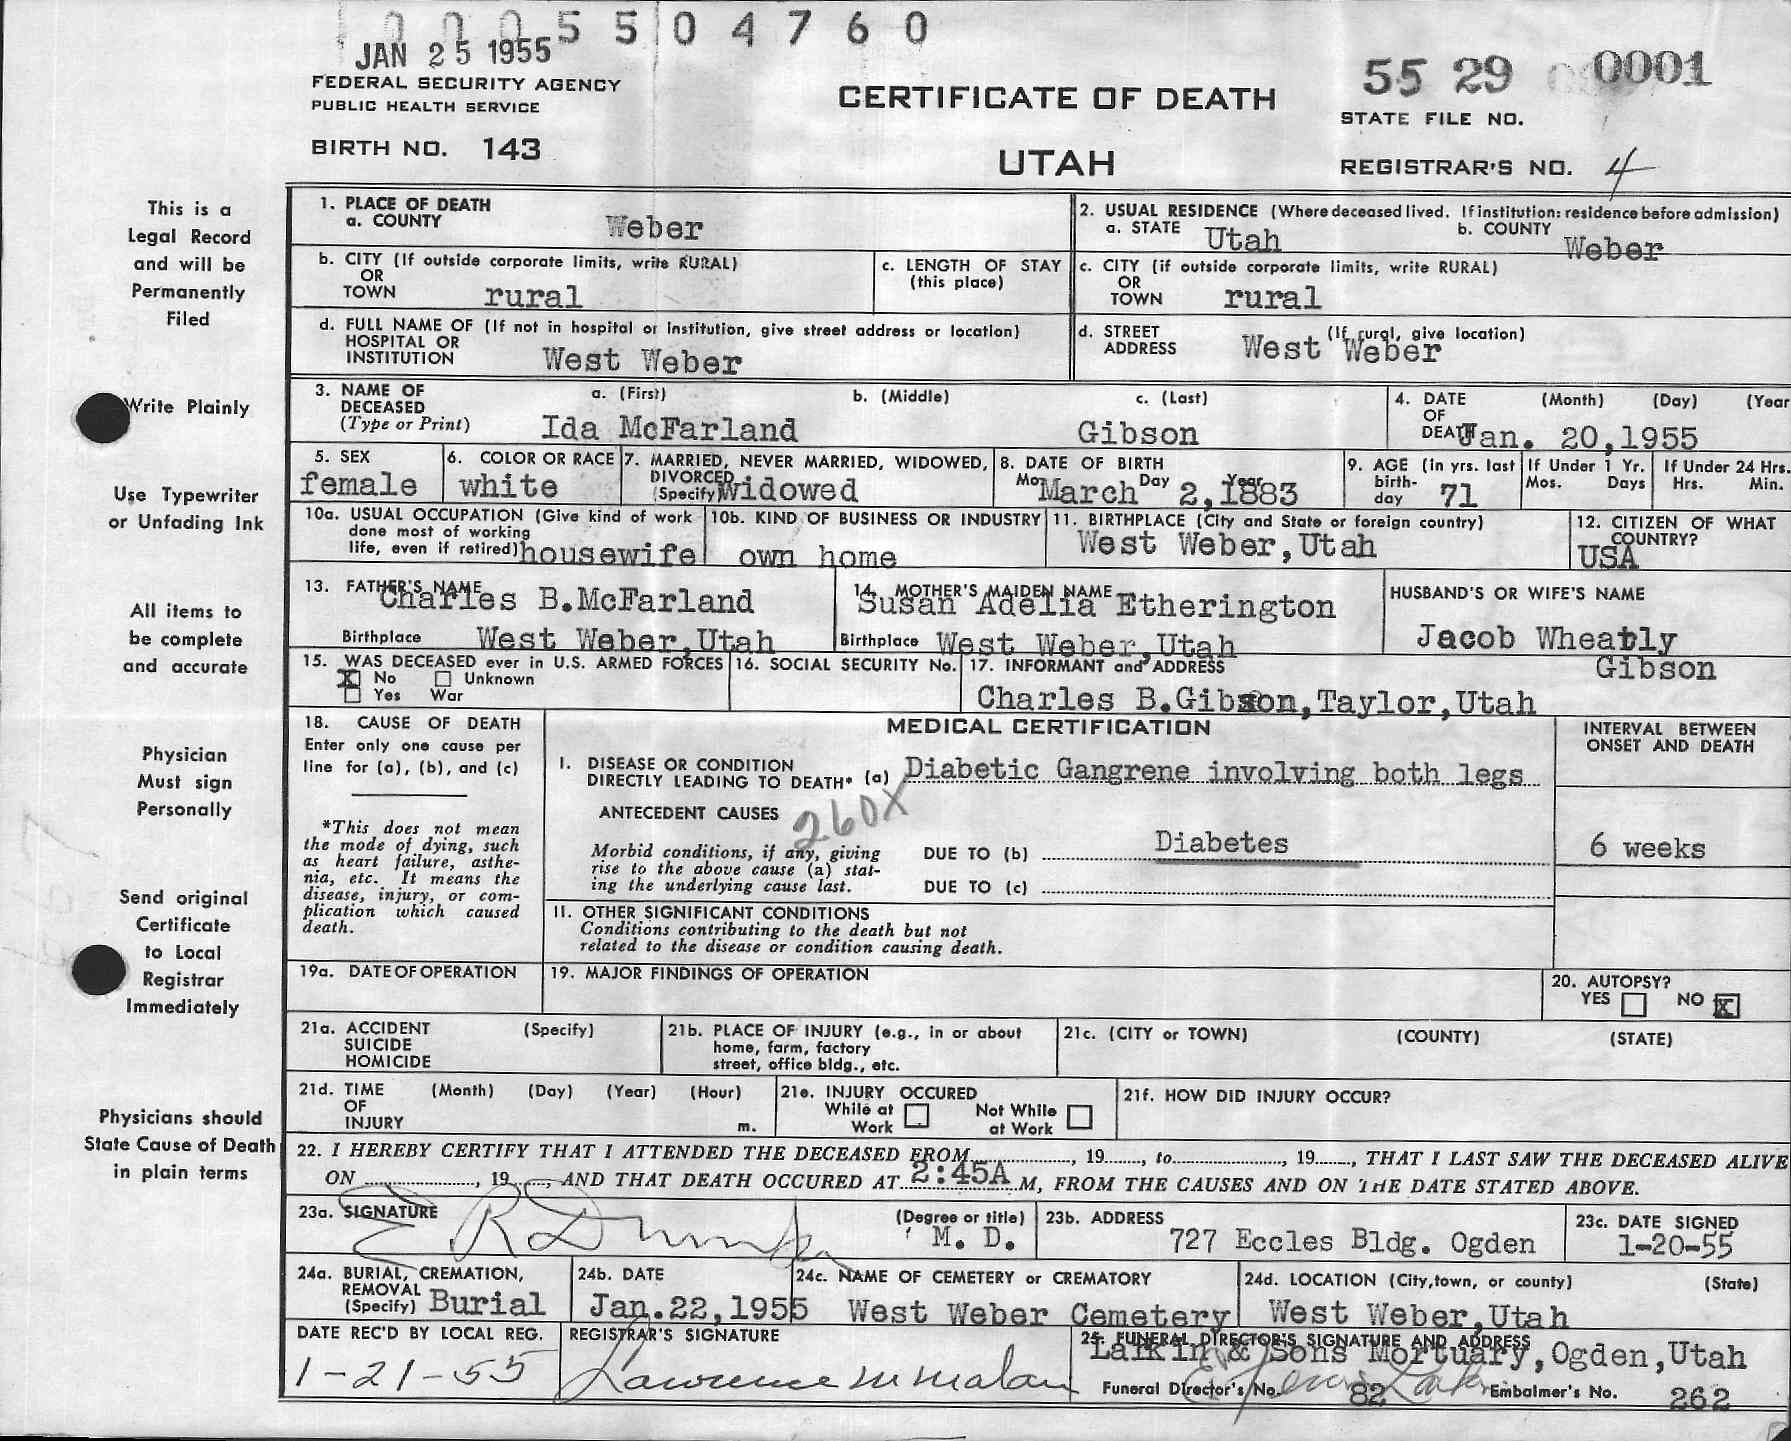 0005504760
JAN 25 1955
FEDERAL SECURITY AGENCY
PUBLIC HEALTH SERVICE
BIRTH NO. 143
CERTIFICATE OF DEATH
UTAH
55 29 0001
STATE FILE NO.
REGISTRAR'S NO. 4
This is a
Legal Record
and will be
Permanently
Filed
Write Plainly
Use Typewriter
or Unfading Ink
All items to
be complete
and accurate
Physician
Must sign
Personally
Send original
Certificate
to Local
Registrar
Immediately
Physicians should
State Cause of Death
in plain terms
1. PLACE OF DEATH
a. COUNTY Weber
2. USUAL RESIDENCE (Where deceased lived. If institution: residence before admission)
a. STATE Utah b. COUNTY Weber
b. CITY (If outside corporate limits, write RURAL)
OR
TOWN rural
c. LENGTH OF STAY
(this place)
c. CITY (if outside corporate limits, write RURAL)
OR
TOWN rural
d. FULL NAME OF (If not in hospital or institution, give street address or location)
HOSPITAL OR
INSTITUTION West Weber
d. STREET (If rural, give location)
ADDRESS West Weber
3. NAME OF DECEASED (Type or Print)
a. (First) b. (Middle) c. (Last)
Ida McFarland Gibson
4. DATE OF DEATH (Month) (Day) (Year
Jan. 20,1955
5. SEX
female
6. COLOR OR RACE
white
7. MARRIED, NEVER MARRIED, WIDOWED,
DIVORCED
(Specify) Widowed
8. DATE OF BIRTH
Mo. Day Year
March 2,1883
9. AGE (in yrs. last
birth-
day 71
If Under 1 Yr.
Mos. Days
If Under 24 Hrs.
Hrs. Min.
10a. USUAL OCCUPATION (Give kind of work
done most of working
life, even if retired) housewife
10b. KIND OF BUSINESS OR INDUSTRY
own home
11. BIRTHPLACE (City and State or foreign country)
West Weber,Utah
12. CITIZEN OF WHAT
COUNTRY?
USA
13. FATHER'S NAME
Charles B.McFarland
Birthplace West Weber,Utah
14. MOTHER'S MAIDEN NAME
Susan Adelia Etherington
Birthplace West Weber,Utah
HUSBAND'S OR WIFE'S NAME
Jacob Wheatly
Gibson
15. WAS DECEASED ever in U.S. ARMED FORCES
X No Unknown
Yes War
16. SOCIAL SECURITY No.
17. INFORMANT and ADDRESS
Charles B.Gibson,Taylor,Utah
18. CAUSE OF DEATH
Enter only one cause per
line for (a), (b), and (c)
*This does not mean
the mode of dying, such
as heart failure, asthe-
nia, etc. It means the
disease, injury, or com-
plication which caused
death.
MEDICAL CERTIFICATION
INTERVAL BETWEEN
ONSET AND DEATH
I. DISEASE OR CONDITION
DIRECTLY LEADING TO DEATH* (a) Diabetic Gangrene involving both legs
ANTECEDENT CAUSES 260X
Morbid conditions, if any, giving
rise to the above cause (a) stat-
ing the underlying cause last.
DUE TO (b) Diabetes
6 weeks
DUE TO (c)
II. OTHER SIGNIFICANT CONDITIONS
Conditions contributing to the death but not
related to the disease or condition causing death.
19a. DATE OF OPERATION
19. MAJOR FINDINGS OF OPERATION
20. AUTOPSY?
YES NO X
21a. ACCIDENT (Specify)
SUICIDE
HOMICIDE
21b. PLACE OF INJURY (e.g., in or about
home, farm, factory
street, office bldg., etc.
21c. (CITY or TOWN) (COUNTY) (STATE)
21d. TIME (Month) (Day) (Year) (Hour)
OF
INJURY m.
21e. INJURY OCCURED
While at Work
Not While at Work
21f. HOW DID INJURY OCCUR?
22. I HEREBY CERTIFY THAT I ATTENDED THE DECEASED FROM , 19 , to , 19 , THAT I LAST SAW THE DECEASED ALIVE
ON , 19 , AND THAT DEATH OCCURED AT 2:45A M, FROM THE CAUSES AND ON THE DATE STATED ABOVE.
23a. SIGNATURE
(Degree or title)
M. D.
23b. ADDRESS
727 Eccles Bldg. Ogden
23c. DATE SIGNED
1-20-55
24a. BURIAL, CREMATION,
REMOVAL
(Specify) Burial
24b. DATE
Jan.22,1955
24c. NAME OF CEMETERY or CREMATORY
West Weber Cemetery
24d. LOCATION (City, town, or county) (State)
West Weber,Utah
DATE REC'D BY LOCAL REG.
1-21-55
REGISTRAR'S SIGNATURE
Lawrence M Malan
25. FUNERAL DIRECTOR'S SIGNATURE AND ADDRESS
Larkin & Sons Mortuary,Ogden,Utah
Funeral Director's No. 82 Embalmer's No. 262